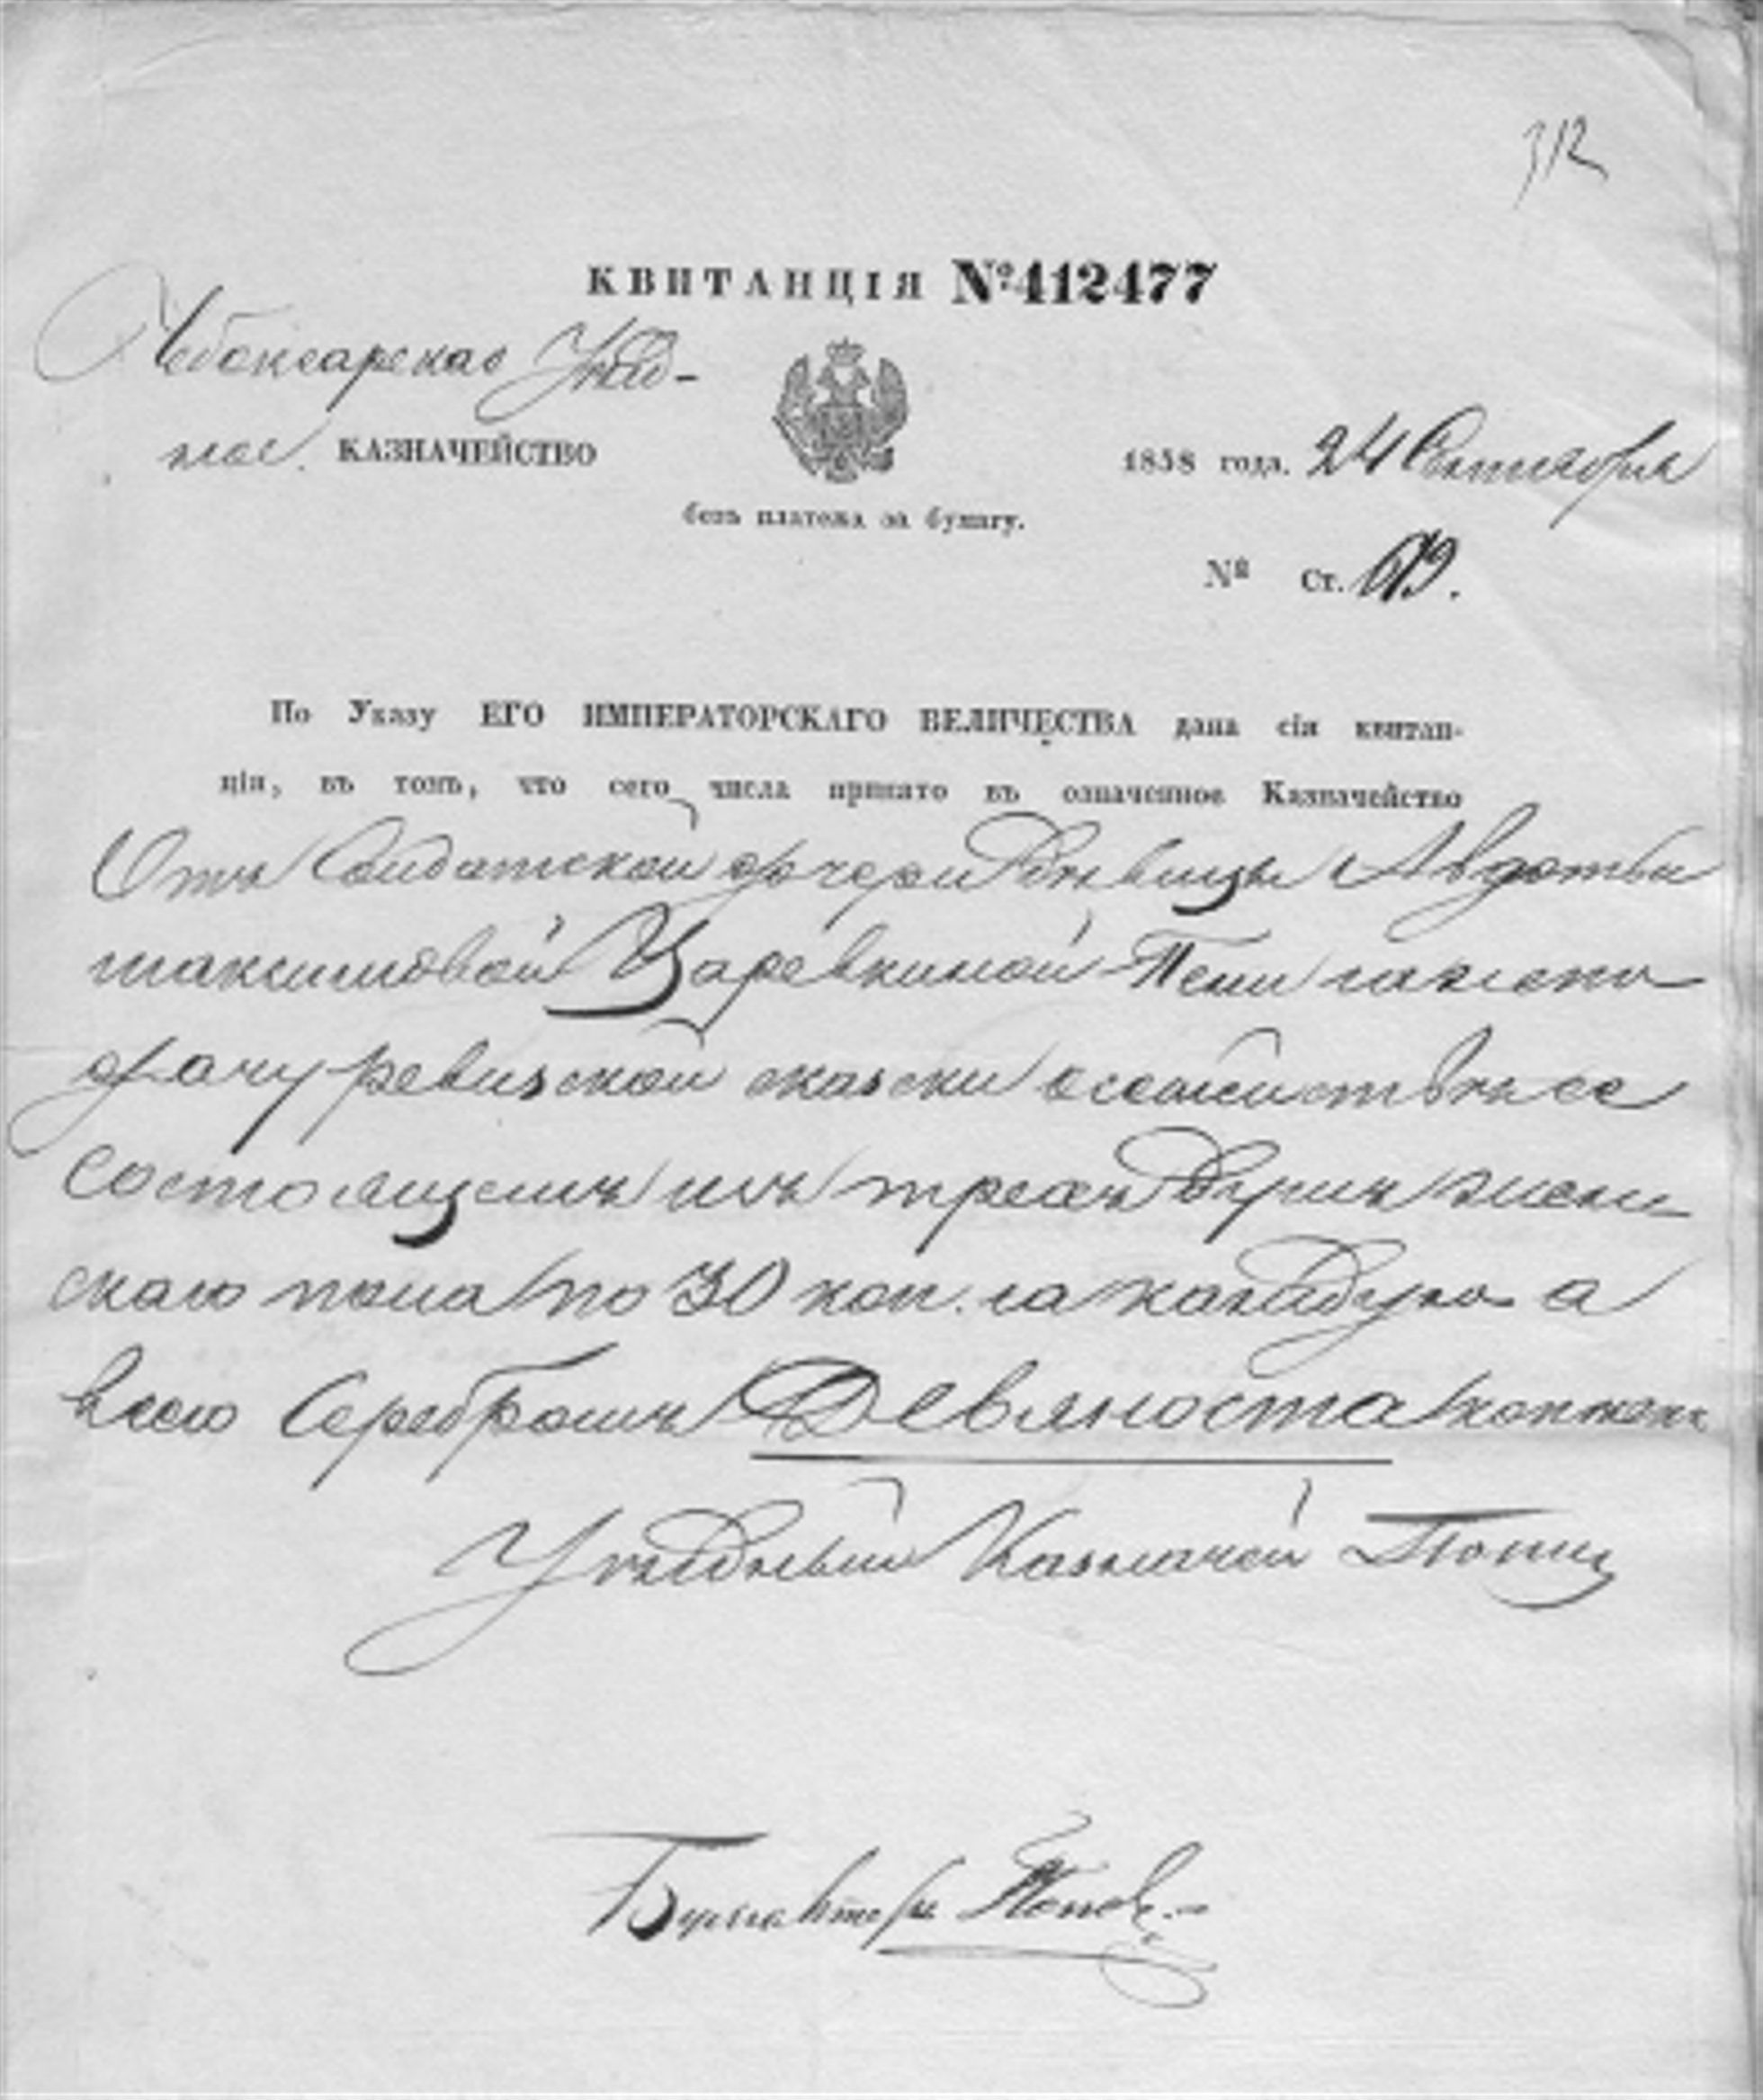 312
КВИТАНЦІЯ №412477
Чебоксарское Уѣзд-
ное КАЗНАЧЕЙСТВО
1858 года. 24 Сентября
безъ платежа за бумагу.
№ Ст.
По Указу ЕГО ИМПЕРАТОРСКАГО ВЕЛИЧЕСТВА дана сія квитан-
ція, въ томъ, что сего числа принято въ означенное Казначейство
Отъ Солдатской дочери Дѣвицы Авдотьи
Максимовой Царевкиной Пени за не по
дачу ревизской сказки о семействѣ ее
состоящемъ изъ трехъ душъ жен
скаго пола по 30 коп. за каждую а
всего Серебромъ Девяноста копѣекъ
Уѣздный Казначей
Бухгалтеръ Поповъ